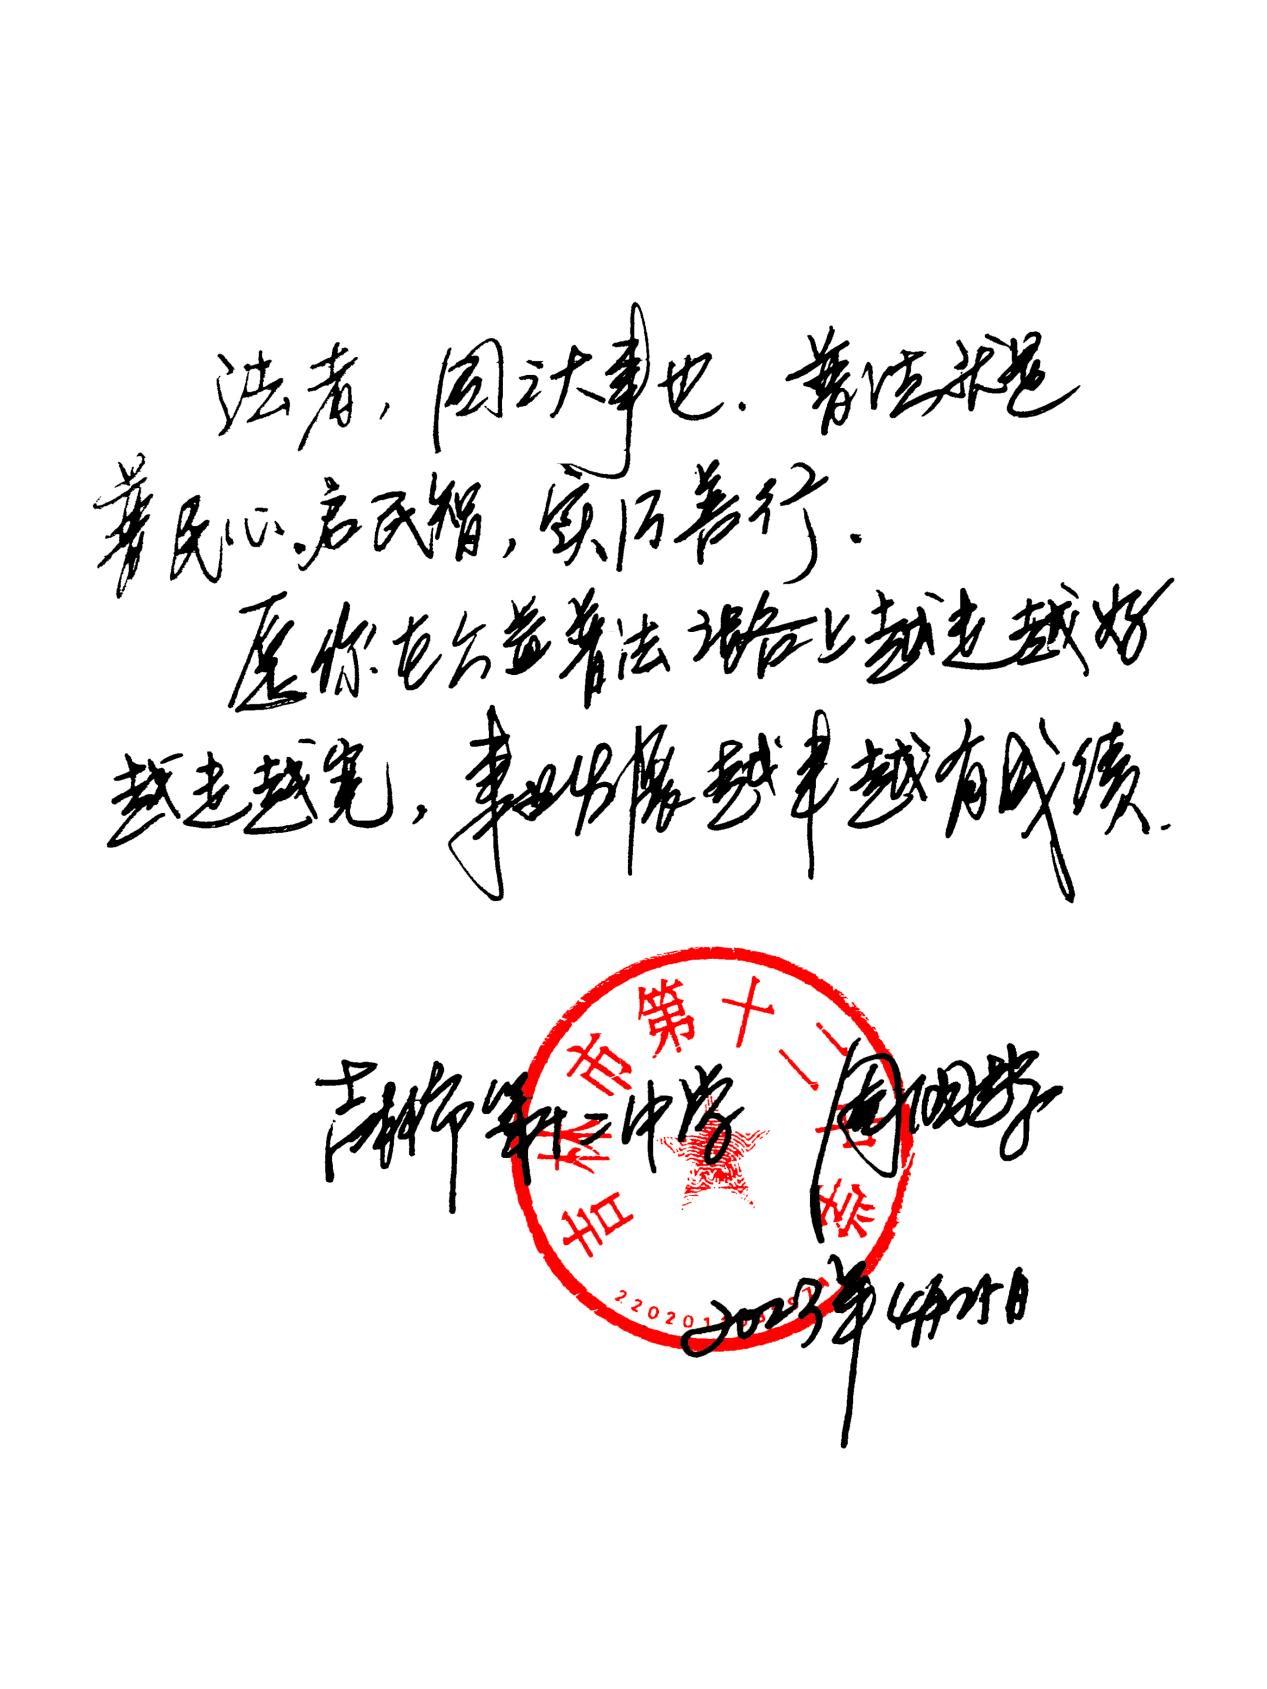 法者，国之大事也．普法就是
普民心、启民智，实乃善行．
愿你在公益普法之路上越走越好
越走越宽，事业发展越来越有成绩．
吉林市第十二中学 周
2023年4月25日
吉林市第十二中学